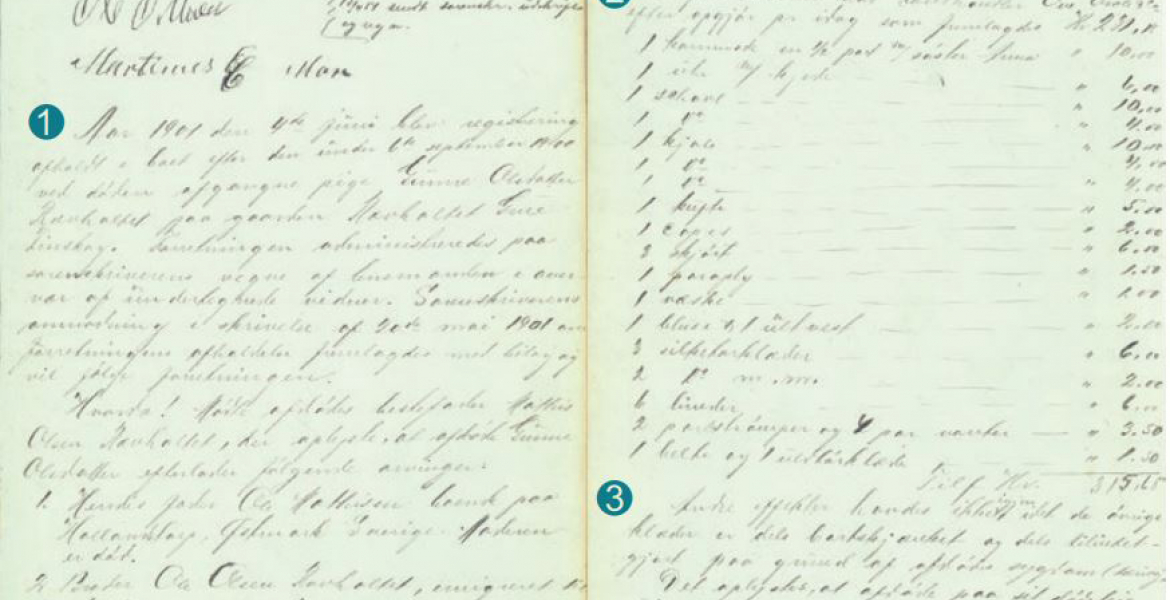 Martinus E Moen
1
Aar 1901 den 4de juni blev registrering
afholdt i boet efter den under 6te september 1900
ved døden afgangne pige Gunne Olsdatter
Ravholtet paa gaarden Ravholtet Grue
Finskog. Forretningen administreredes paa
sorenskriverens vegne af lensmanden i over
vær af undertegnede vidner. Sorenskriverens
anmodning i skrivelse af 20de mai 1901 om
forretningens afholdelse fremlagdes med bilag og
vil følge forretningen.
Hvorda! Mødte afdødes bestefader Mathis
Olsen Ravholtet, der oplyste, at afdøde Gunne
Olsdatter efterlader følgende arvinger:
1. Hendes fader Ole Mathisen boende paa
Sverige. Moderen
er død.
2. Broder Ole Olsen Ravholtet, emigreret til
2
efter opgjør pr idag som fremlagdes Kr 231.
1 kammode en ½ part m/ søster Anna " 10.00
1 uhr m/ kjede " 6.00
1 schavl " 10.00
1 do " 4.00
1 kjole " 10.00
1 do " 4.00
1 do " 4.00
1 kufte " 5.00
1 capes " 2.00
3 skjørt " 6.00
1 paraply " 1.50
1 væske " 2.00
1 bluse & 1 uldvest " 2.00
3 silketørklæder " 6.00
2 do m.m. " 2.00
6 linneder " 6.00
2 par strømper og 4 par vanter " 3.50
1 belte og 1 uldtørklæde " 1.50
Tils. Kr. 315.
3
Andre effekter havdes ikke igjen idet de øvrige
klæder er dels bortskjænket og dels tilintet-
gjort paa grund af afdødes sygdom
Det oplystes, at afdøde paa sit